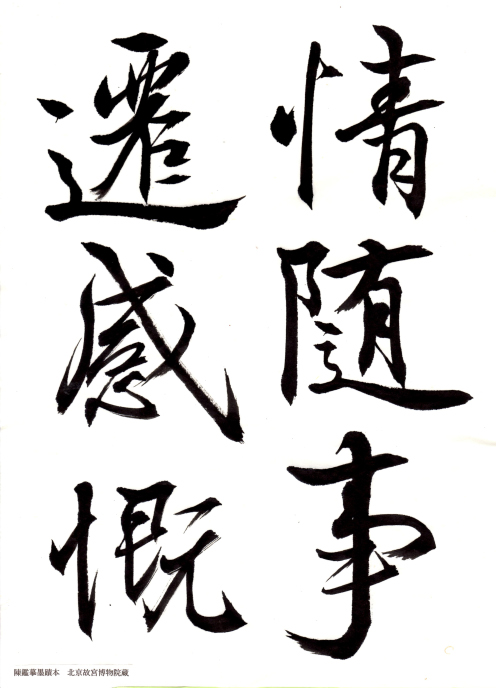 情随事
遷感慨
陳鑑摹墨蹟本　北京故宮博物院藏